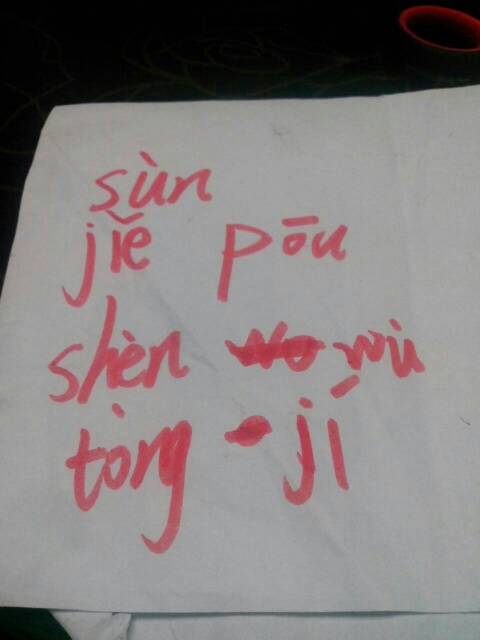 sùn
jǐe pōu
shèn wù
tòng jí